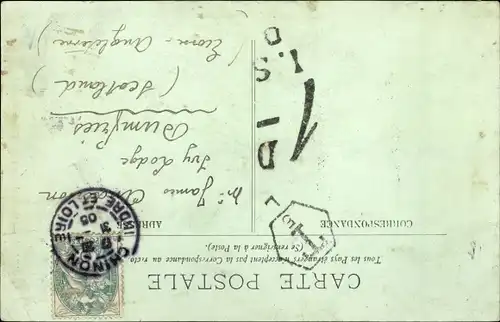 CARTE POSTALE
Tous les Pays étrangers n'acceptent pas la Correspondance au recto
(Se renseigner à la Poste).
CORRESPONDANCE
T
CHINON
INDRE ET LOIRE
31
05
Mr James
Ivy Lodge
Dumfries
(Scotland)
(Ecosse - Angleterre)